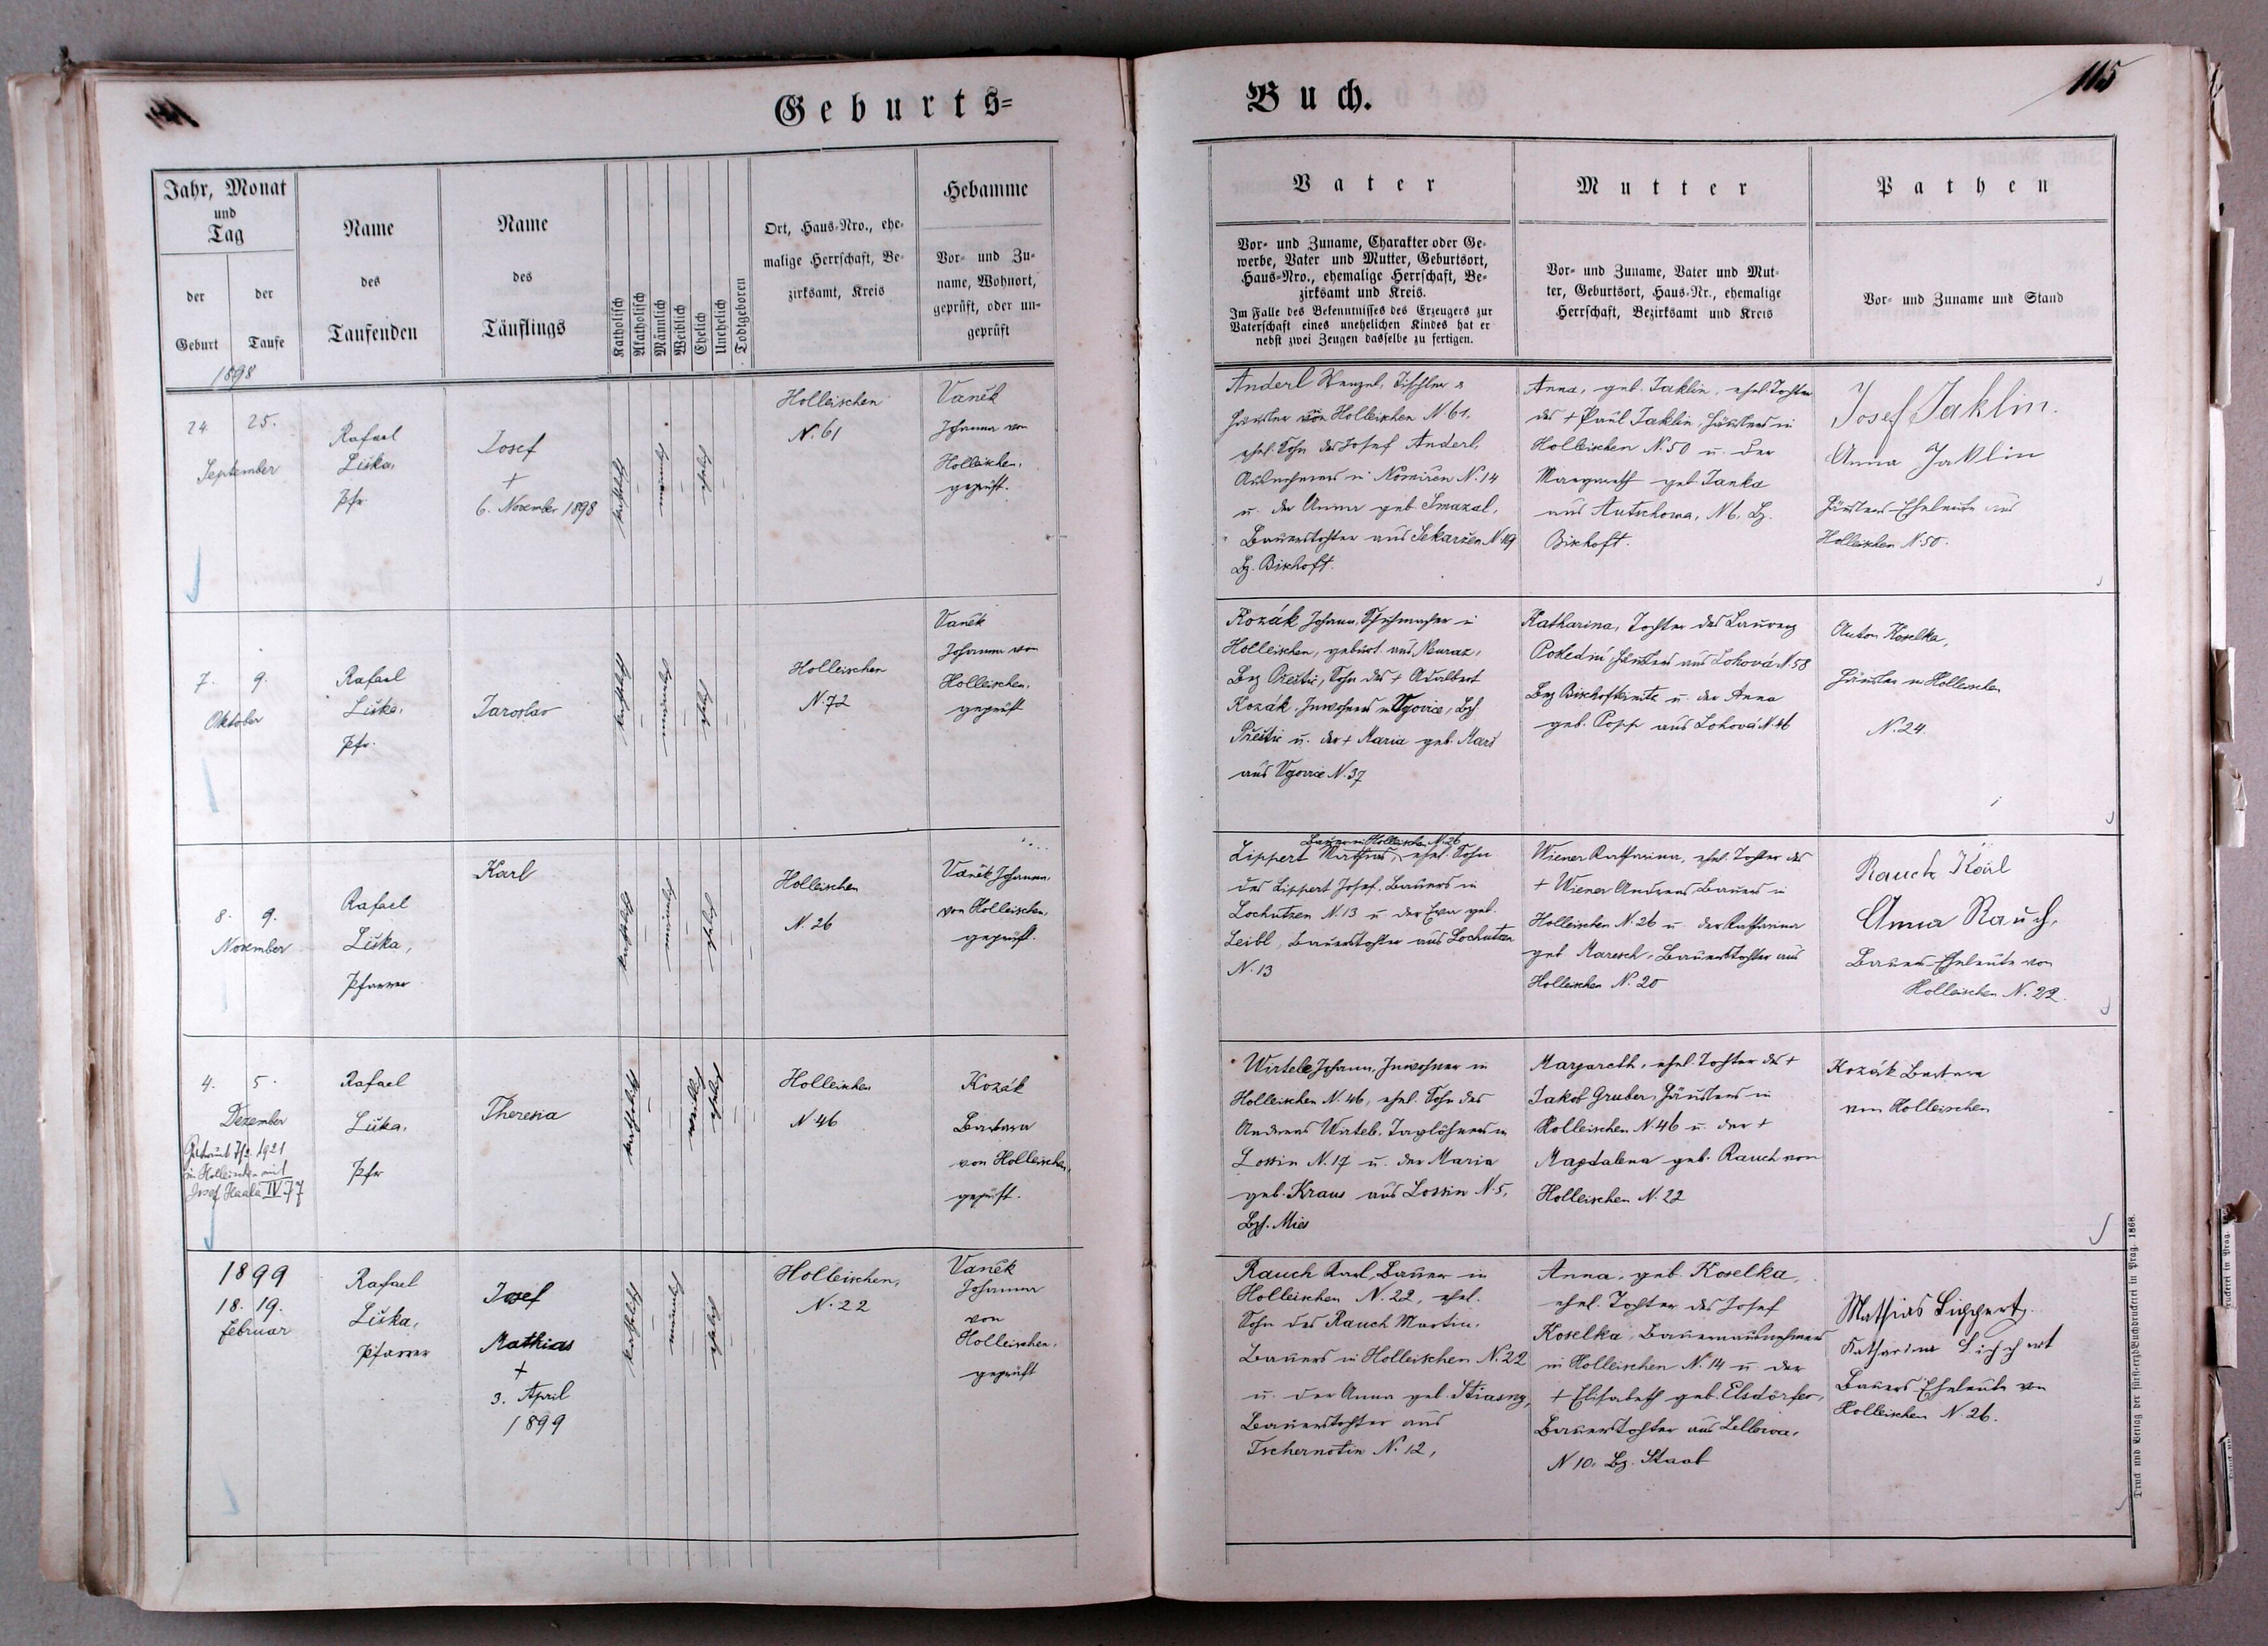 Geburts=
Buch.
115
Jahr, Monat
und
Tag
der
Geburt
der
Taufe
Name
des
Taufenden
Name
des
Täuflings
Katholisch
Akatholisch
Männlich
Weiblich
Ehelich
Unehelich
Todtgeboren
Ort, Haus=Nro., ehe=
malige Herrschaft, Be=
zirksamt, Kreis
Hebamme
Vor= und Zu=
name, Wohnort,
geprüft, oder un=
geprüft
Vater
Vor= und Zuname, Charakter oder Ge=
werbe, Vater und Mutter, Geburtsort,
Haus=Nro., ehemalige Herrschaft, Be=
zirksamt und Kreis.
Im Falle des Bekenntnisses des Erzeugers zur
Vaterschaft eines unehelichen Kindes hat er
nebst zwei Zeugen dasselbe zu fertigen.
Mutter
Vor= und Zuname, Vater und Mut=
ter, Geburtsort, Haus=Nr., ehemalige
Herrschaft, Bezirksamt und Kreis
Pathen
Vor= und Zuname und Stand
1898
24. 25.
September
Rafael
Liška,
Pfr.
Josef
+
6. November 1898
katholisch
Männlich
ehelich
Holleischen
N. 61
Vaněk
Johanna von
Holleischen,
geprüft.
Anderl Wenzel, Tischler &
Häusler von Holleischen N. 61,
ehel. Sohn des Josef Anderl,
Ausnehmers in N. 14
u. der Anna geb. Smazal,
Bauerstochter aus Sekeržen N. 19
Bz. Bischoft.
Anna, geb. Jaklin, ehel. Tochter
des + Paul Jaklin, Häuslers in
Holleischen N. 50 u. der
Margareth geb. Janka
aus Autschowa, N 6, Bz.
Bischoft.
Josef Jaklin.
Anna Jaklin
Häuslers-Eheleute aus
Holleischen N. 50.
7. 9.
Oktober
Rafael
Liška,
Pfr.
Jaroslav
katholisch
Männlich
ehelich
Holleischen
N. 72
Vaněk
Johanna von
Holleischen,
geprüft
Kozák Johann, Schuhmacher in
Holleischen, gebürt. aus Neuraz,
Bez Přeštic, Sohn des + Adalbert
Kozák, Inwohners in Vgovic, Bzh.
Přeštic u. der + Maria geb.
aus N. 37
Katharina, Tochter des Laurenz
Poslední, Häuslers aus Lohová N. 58
Bez Bischofteinitz u. der Anna
geb. Popp aus Lohová N. 46
Anton Koselka,
Häusler in Holleischen
N. 24.
8. 9.
November
Rafael
Liška,
Pfarrer
Karl
katholisch
Männlich
ehelich
Holleischen
N. 26
Vaněk Johanna,
von Holleischen,
geprüft.
Bauer in Holleischen N. 26
Lippert Mathias, ehel. Sohn
des Lippert Josef, Bauers in
Lochutzen N. 13 u. der Eva geb.
Leibl, Bauerstochter aus Lochutzen
N. 13
Wiener Katharina, ehel. Tochter des
+ Wiener Andreas, Bauers in
Holleischen N. 26 u. der Katharina
geb. Maresch, Bauerstochter aus
Holleischen N. 20
Rauch Karl
Anna Rauch,
Bauers-Eheleute von
Holleischen N. 22.
4. 5.
Dezember
Getraut 7/2. 1921
in Holleischen mit
Josef IV. 77
Rafael
Liška,
Pfr
Theresia
katholisch
Weiblich
ehelich
Holleischen
N 46
Kozák
Barbara
von Holleischen,
geprüft.
Johann, Inwohner in
Holleischen N. 46, ehel. Sohn des
Andreas Taglöhners in
Lossin N. 17 u. der Maria
geb. Kraus aus Lossin N. 5,
Bzh. Mies
Margareth, ehel. Tochter des +
Jakob Gruber, Häuslers in
Holleischen N. 46 u. der +
Magdalena geb. Rauch von
Holleischen N. 22
Kozák Barbara
von Holleischen
1899
18. 19.
Februar
Rafael
Liška,
Pfarrer
Josef
Mathias
+
3. April
1899
katholisch
Männlich
ehelich
Holleischen,
N. 22
Vaněk
Johanna
von
Holleischen,
geprüft
Rauch Karl, Bauer in
Holleischen N. 22, ehel.
Sohn des Rauch Martin,
Bauers in Holleischen N. 22
u. der Anna geb. Stiasny,
Bauerstochter aus
Tschernotin N. 12,
Anna, geb. Koselka,
ehel. Tochter des Josef
Koselka, Bauernausnehmers
in Holleischen N. 14 u. der
+ Elisabeth geb. Elsdörfer,
Bauerstochter aus Lellowa,
N 10, Bz. Staab
Mathias Lippert
Katharina Lippert
Bauers-Eheleute von
Holleischen N. 26.
Druck und Verlag der fürst=erzb. Buchdruckerei in Prag. 1868.